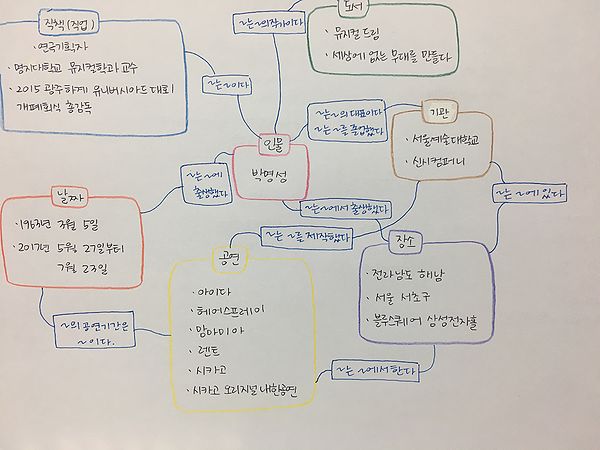 직책 (직업)
· 연극기획자
· 명지대학교 뮤지컬학과 교수
· 2015 광주하계 유니버시아드 대회
개폐회식 총감독
~는 ~의 작가이다
도서
· 뮤지컬 드림
· 세상에 없는 무대를 만들다
~는 ~이다
~는 ~의 대표이다
~는 ~를 졸업했다
기관
· 서울예술대학교
· 신시컴퍼니
인물
박명성
~는 ~에
출생했다
~는 ~에서 출생했다
~는 ~에 있다
날짜
· 1963년 3월 5일
· 2017년 5월 27일부터
7월 23일
~는 ~를 제작했다
장소
· 전라남도 해남
· 서울 서초구
· 블루스퀘어 삼성전자홀
공연
· 아이다
· 헤어스프레이
· 맘마미아
· 렌트
· 시카고
· 시카고 오리지널 내한공연
~의 공연기간은
~이다.
~는 ~에서 한다